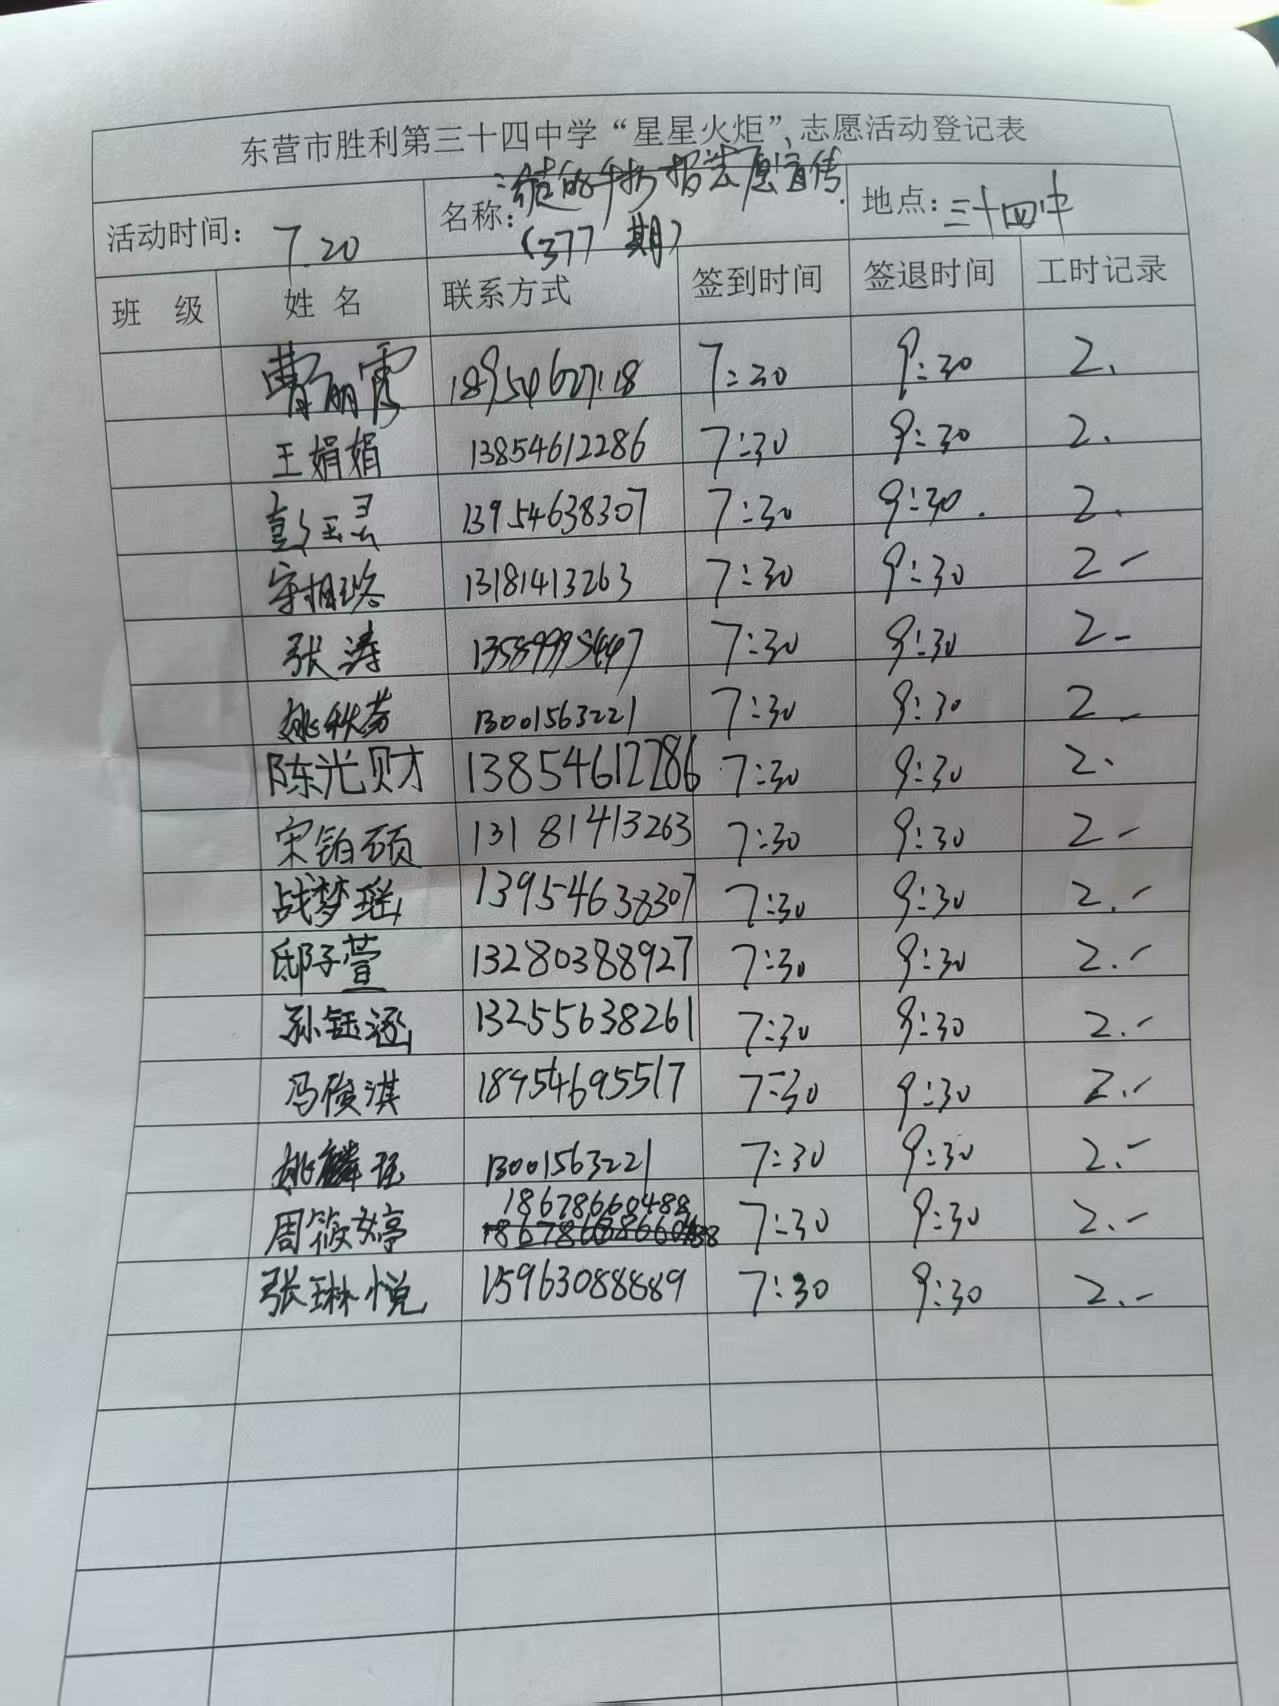 东营市胜利第三十四中学“星星火炬”志愿活动登记表
活动时间: 7.20 名称: 手抄报志愿宣传 (377期) 地点: 三十四中
班 级 姓 名 联系方式 签到时间 签退时间 工时记录
曹丽霞 7:30 9:30 2.
王娟娟 13854612286 7:30 9:30 2.
彭玉灵 13954638307 7:30 9:30. 2.
13181413263 7:30 9:30 2-
张涛 7:30 9:30 2-
姚秋芬 13001563221 7:30 9:30 2-
陈光财 13854612286 7:30 9:30 2.
宋铂硕 13181413263 7:30 9:30 2-
战梦瑶 13954638307 7:30 9:30 2.-
邸子萱 13280388927 7:30 9:30 2.-
孙钰涵 13255638261 7:30 9:30 2.-
冯俊淇 18954695517 7:30 9:30 2.-
姚麟 13001563221 7:30 9:30 2.-
周筱婷 18678660488 7:30 9:30 2.-
张琳悦 15963088889 7:30 9:30 2.-